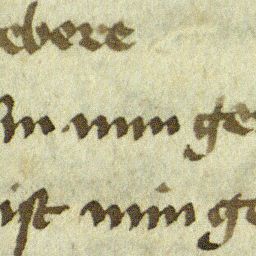 ebore
in min ge
ist min ge